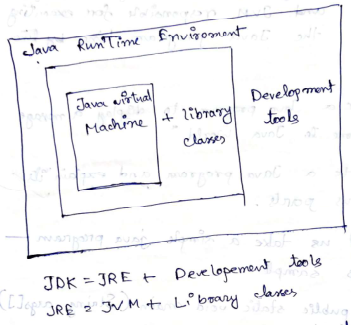 Java RunTime Enviroment
Java virtual
Machine
+ library
classes
Development
tools
JDK = JRE + Developement tools
JRE = JVM + Library classes